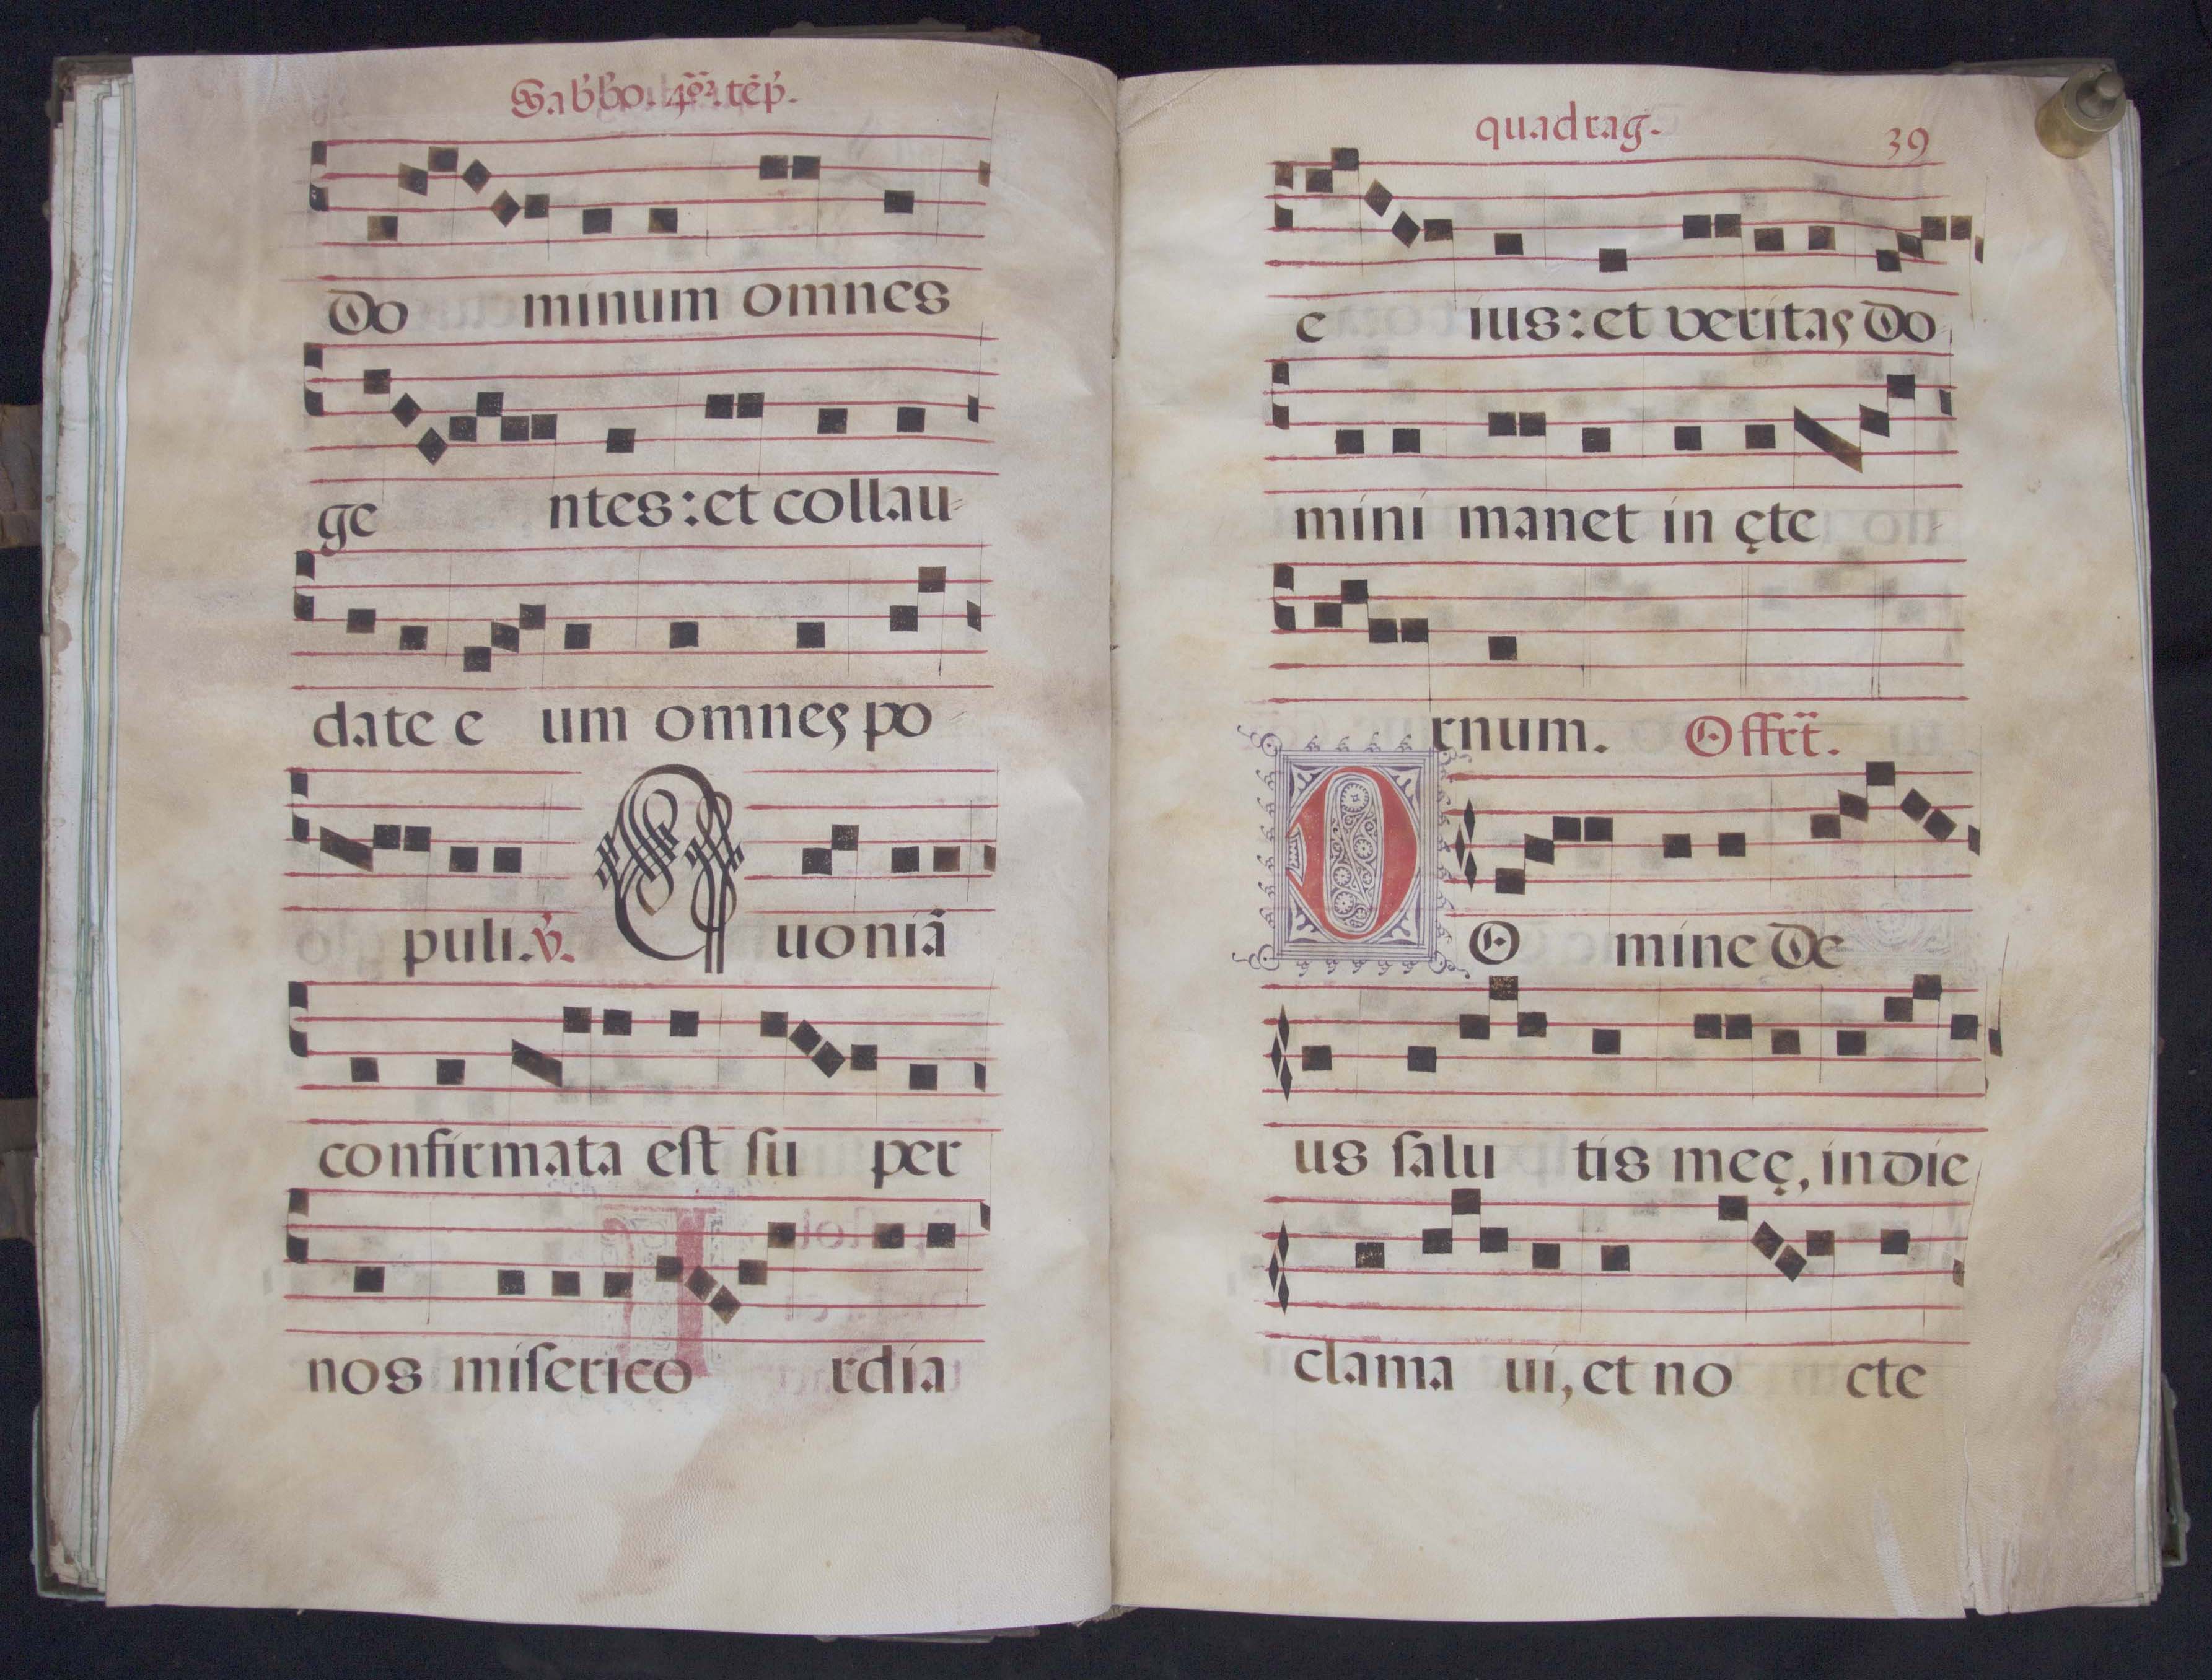 Sabb̉o. 4or̃. tẽp̉.
Do minum omnes
ge ntes: et collau-
date e um omnes po-
puli. ℣. Quoniã
confirmata eſt ſu per
nos miſerico rdia
quadrag.
39
e ius: et veritas Do-
mini manet in ęte-
rnum. Offrt̃.
DO mine De
us ſalu tis meę, in die
clama ui, et no cte